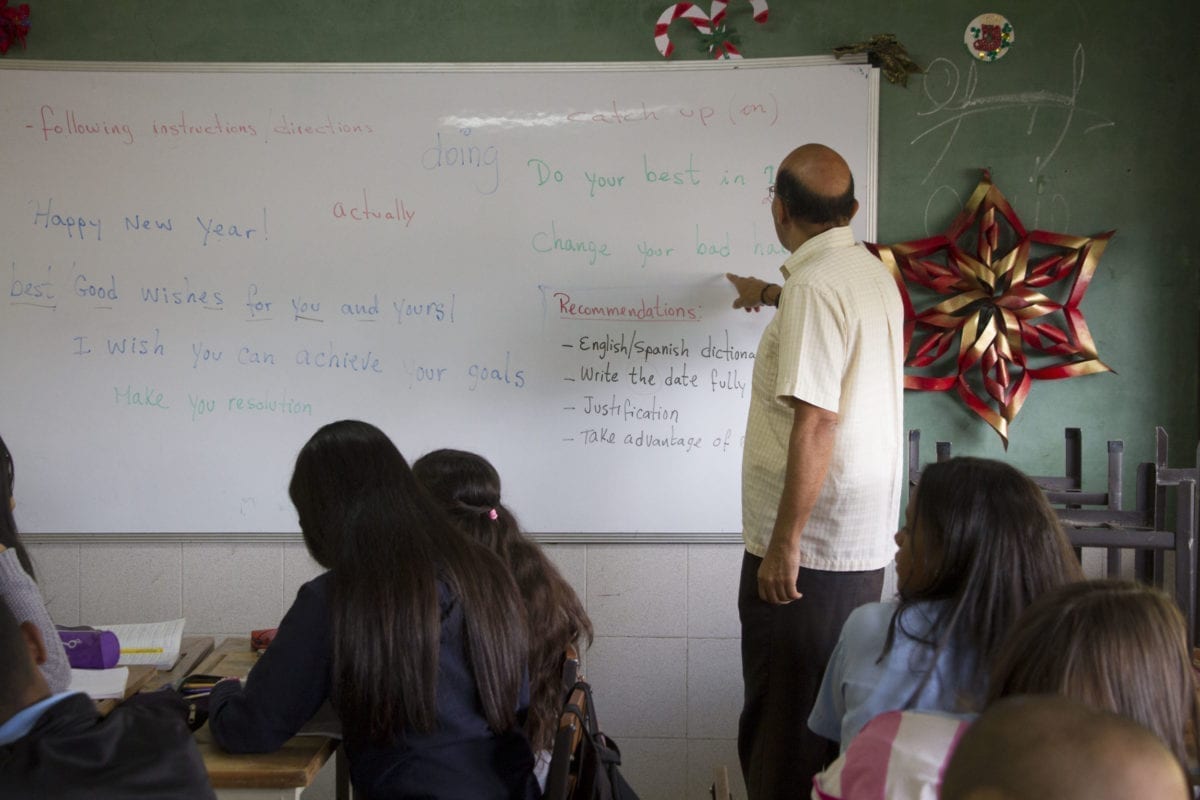 - following instructions/directions
catch up (on)
doing
Do your best in
Happy New Year!
actually
Change your bad
best Good wishes for you and yours!
I wish you can achieve your goals
Make you resolution
Recommendations:
- English/Spanish dictiona
- Write the date fully
- Justification
- Take advantage of